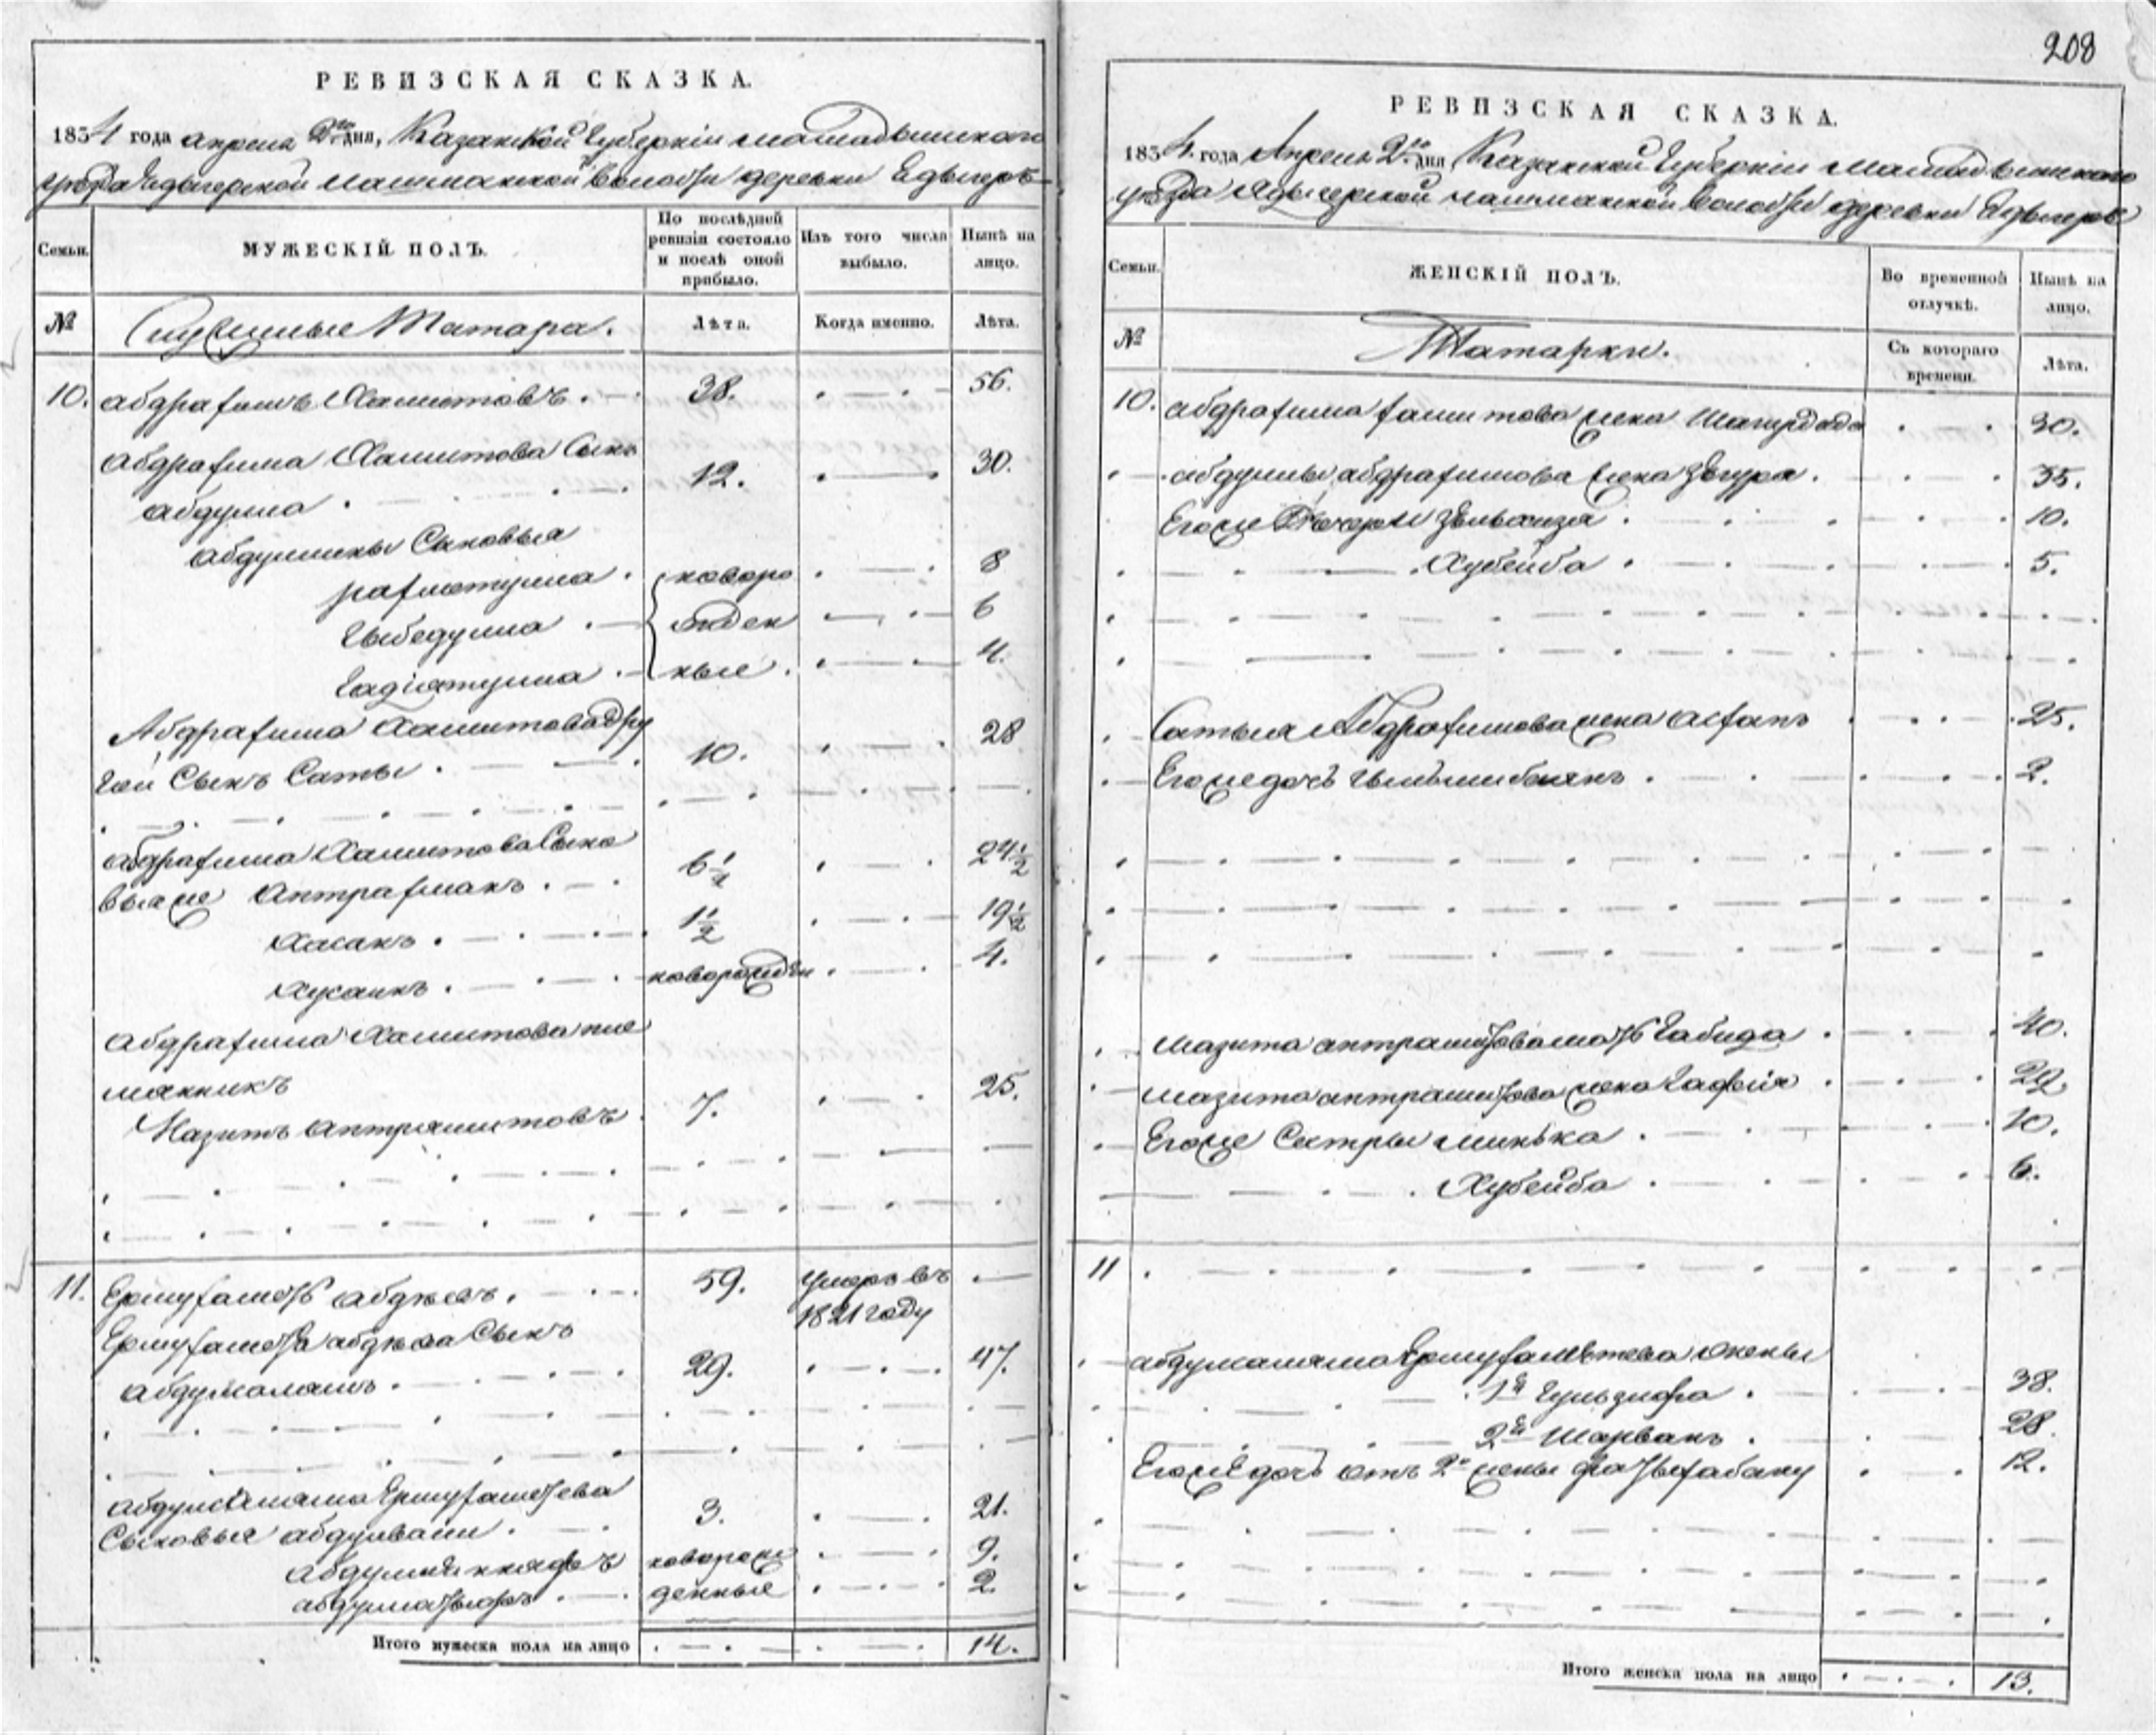 208
РЕВИЗСКАЯ СКАЗКА.
1834 года апреля 2го дня, Казанской Губернiи Мамадышскаго
уезда Едыгерской волости деревни Едыгеръ
Семьи.
МУЖЕСКIЙ ПОЛЪ.
По послѣдней ревизiи состояло и послѣ оной прибыло.
Изъ того числа выбыло.
Нынѣ на лицо.
№
Служилые Татара.
Лѣта.
Когда именно.
Лѣта.
10. Абдрафимъ Хамитовъ. 38. 56.
Абдрафима Хамитова Сынъ
Абдулла 12. 30.
Абдуллины Сыновья
рафматулла новоро 8
Гыбедулла жден 6
Гадiатулла ные 4.
Абдрафима Хамитова дру
гой Сынъ Саты 10. 28
Абдрафима Хамитова Сыно
вья же Аптрафманъ 6½ 24½
Хасанъ 1½ 19½
Хусаинъ новорожден 4.
Абдрафима Хамитова пле
мянникъ
Мазитъ Аптряшитовъ 7. 25.
11. Ермуфаметь Абдѣевъ. 59. умеръ въ
1821 году
Ермуфаметя Абдѣева Сынъ
Абдулмаляшъ 29. 47.
Сыновья Абдулвали 3. 21.
новорож 9.
денные 2.
Итого мужеска пола на лицо 14.
РЕВИЗСКАЯ СКАЗКА.
1834 года Апреля 2го дня Казанской Губернiи Мамадышскаго
уезда Едыгерской волости деревни Едыгеръ
Семьи.
ЖЕНСКIЙ ПОЛЪ.
Во временной отлучкѣ.
Нынѣ на лицо.
№
Татарки.
Съ котораго времени.
Лѣта.
10. Абдрафима Хамитова жена 30.
Абдуллы Абдрафимова жена Зѣгура 35.
Егоже Дочери 10.
Хубейба 5.
Сатыя Абдрафимова жена Асфапъ 25.
Егоже дочь 2.
Мазита мать Габида 40.
Мазита жена Гафiя 22
Егоже Сестры Минька 10.
Хубейба 6.
11
Ермуфаметева жены
1я Гульзифа 38.
2я Шарванъ 28.
Егоже дочь отъ 2й жены 12.
Итого женска пола на лицо 13.